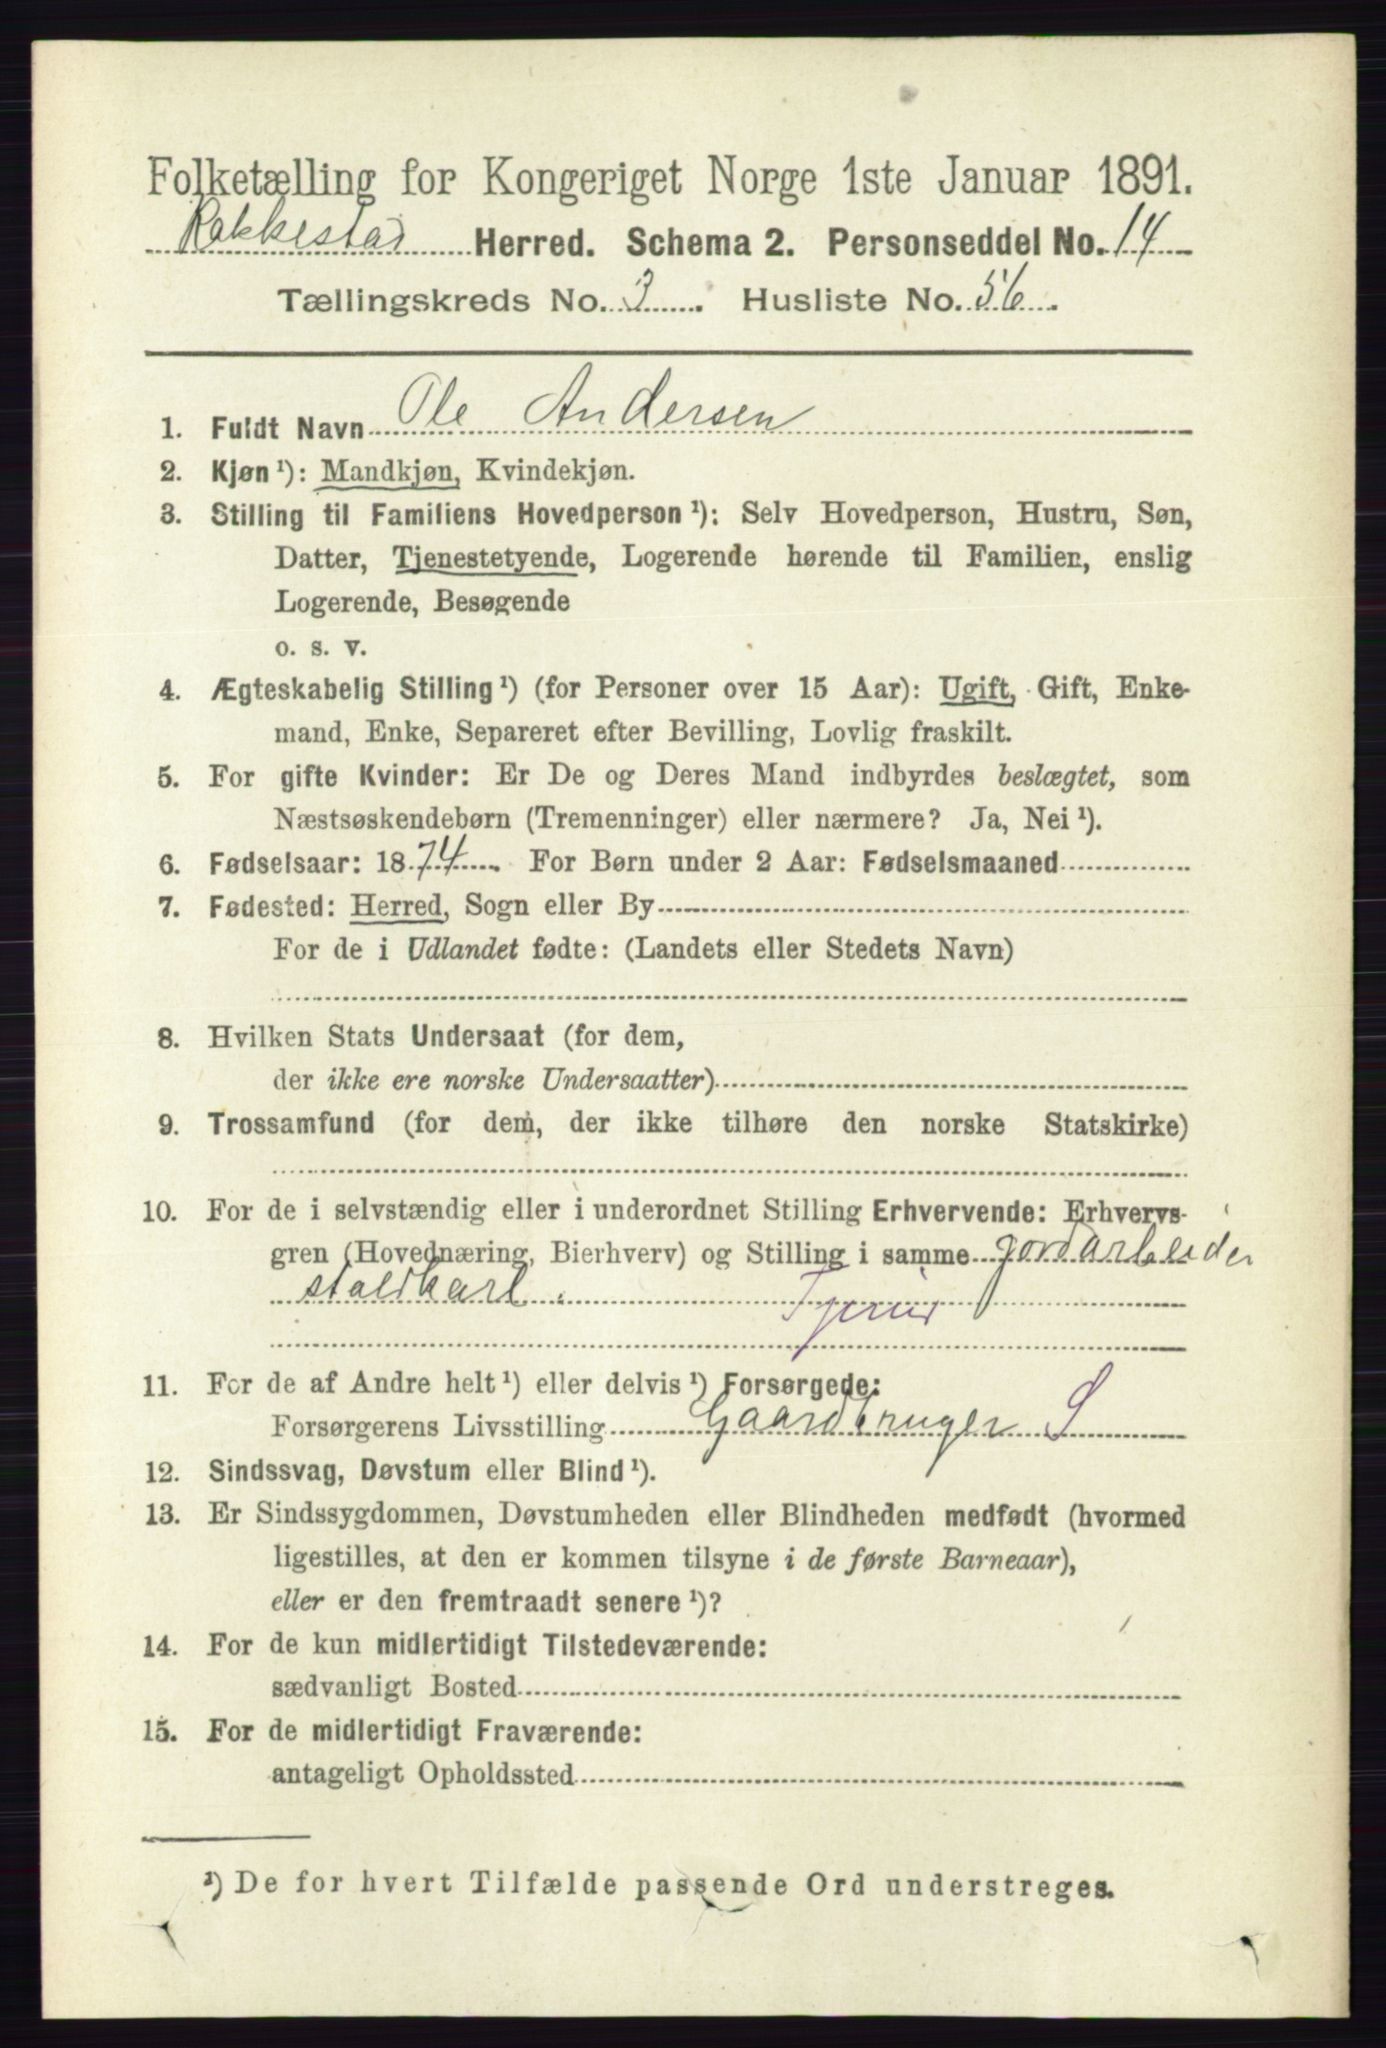 Folketælling for Kongeriget Norge 1ste Januar 1891.
Rakkestad Herred. Schema 2. Personseddel No. 14
Tællingskreds No. 3. Husliste No. 56.
1. Fuldt Navn Ole Andersen
2. Kjøn ¹): Mandkjøn, Kvindekjøn.
3. Stilling til Familiens Hovedperson ¹): Selv Hovedperson, Hustru, Søn,
Datter, Tjenestetyende, Logerende hørende til Familien, enslig
Logerende, Besøgende
o. s. v.
4. Ægteskabelig Stilling ¹) (for Personer over 15 Aar): Ugift, Gift, Enke-
mand, Enke, Separeret efter Bevilling, Lovlig fraskilt.
5. For gifte Kvinder: Er De og Deres Mand indbyrdes beslægtet, som
Næstsøskendebørn (Tremenninger) eller nærmere? Ja, Nei ¹).
6. Fødselsaar: 1874. For Børn under 2 Aar: Fødselsmaaned
7. Fødested: Herred, Sogn eller By
For de i Udlandet fødte: (Landets eller Stedets Navn)
8. Hvilken Stats Undersaat (for dem,
der ikke ere norske Undersaatter)
9. Trossamfund (for dem, der ikke tilhøre den norske Statskirke)
10. For de i selvstændig eller i underordnet Stilling Erhvervende: Erhvervs-
gren (Hovednæring, Bierhverv) og Stilling i samme Jordarbeider
staldkarl.
11. For de af Andre helt ¹) eller delvis ¹) Forsørgede:
Forsørgerens Livsstilling Gaardbruger S
12. Sindssvag, Døvstum eller Blind ¹).
13. Er Sindssygdommen, Døvstumheden eller Blindheden medfødt (hvormed
ligestilles, at den er kommen tilsyne i de første Barneaar),
eller er den fremtraadt senere ¹)?
14. For de kun midlertidigt Tilstedeværende:
sædvanligt Bosted
15. For de midlertidigt Fraværende:
antageligt Opholdssted
¹) De for hvert Tilfælde passende Ord understreges.